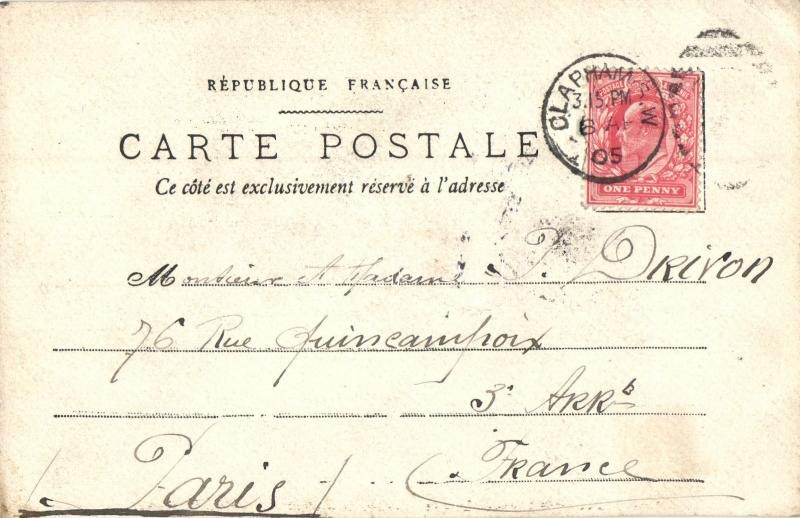 RÉPUBLIQUE FRANÇAISE
CARTE POSTALE
Ce côté est exclusivement réservé à l'adresse
CLAPHAM S.W
3.15. PM
05
ONE PENNY
Monsieur et Madame P. Drivon
76 Rue Quincampoix
3e Arrt
Paris France